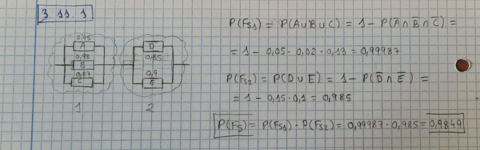 3.11.1
0,95
A
0,98
B
0,87
C
1
D
0,85
0,9
E
2
P(Fs₁) = P(A∪B∪C) = 1 - P(A̅∩B̅∩C̅) =
= 1 - 0,05 · 0,02 · 0,13 = 0,99987
P(Fs₂) = P(D∪E) = 1 - P(D̅∩E̅) =
= 1 - 0,15 · 0,1 = 0,985
P(Fs) = P(Fs₁) · P(Fs₂) = 0,99987 · 0,985 = 0,9849